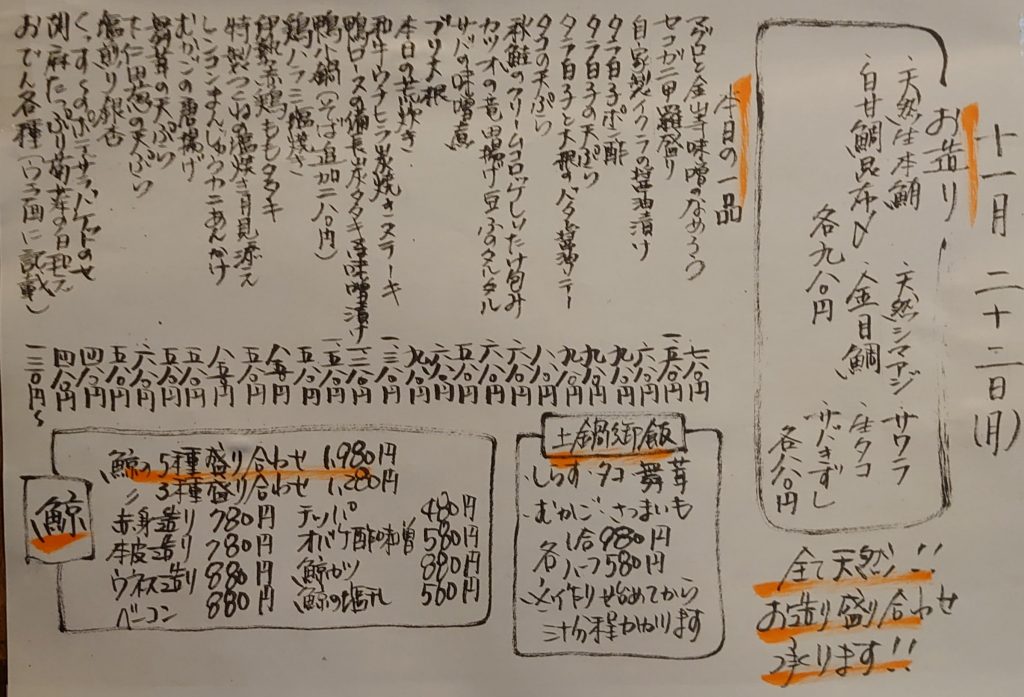 十一月 二十二日(月)
お造り
天然生本鮪 天然シマアジ サワラ
白甘鯛昆布〆 金目鯛 生タコ
各九八〇円
サバきずし
各八八〇円
全て天然!!
お造り盛り合わせ
承ります!!
本日の一品
マグロと金山寺味噌のなめろう 七八〇円
セコガニ甲羅盛り 一、五八〇円
自家製イクラの醤油漬け 六八〇円
タラ白子ポン酢 九八〇円
タラ白子の天ぷら 九八〇円
タラ白子と大根のバタ醤油ソテー 九八〇円
タコの天ぷら 八八〇円
秋鮭のクリームコロッケしいたけ包み 六八〇円
カツオの竜田揚げ豆ふのタルタル 六八〇円
サバの味噌煮 五八〇円
ブリ大根
本日の荒炊き
和牛ウチヒラ炭焼きステーキ
鴨ロースの備長炭タタキ 味噌漬け
鴨小鍋(そば追加二八〇円)
鶏バラ塩焼き
伊勢赤鶏ももタタキ
特製つくねの塩焼き月見添え
レンコンまんじゅうカニあんかけ
むかごの唐揚げ
舞茸の天ぷら
下仁田葱の天ぷら
塩煎り銀杏
くんせいのポテサラバゲットのせ
胡麻たっぷり菊菜の白和え
おでん各種(ウラ面に記載) 一三〇円〜
土鍋御飯
・しらす・タコ・舞茸
・むかご・さつまいも
各 1合 980円
ハーフ 580円
※作り始めてから
三十分程かかります
鯨
鯨の5種盛り合わせ 1,980円
〃 3種盛り合わせ 1,280円
赤身造り 780円 テッパ 480円
本皮造り 780円 オバケ酢味噌 580円
ウネス造り 880円 鯨カツ 880円
ベーコン 880円 鯨の塩